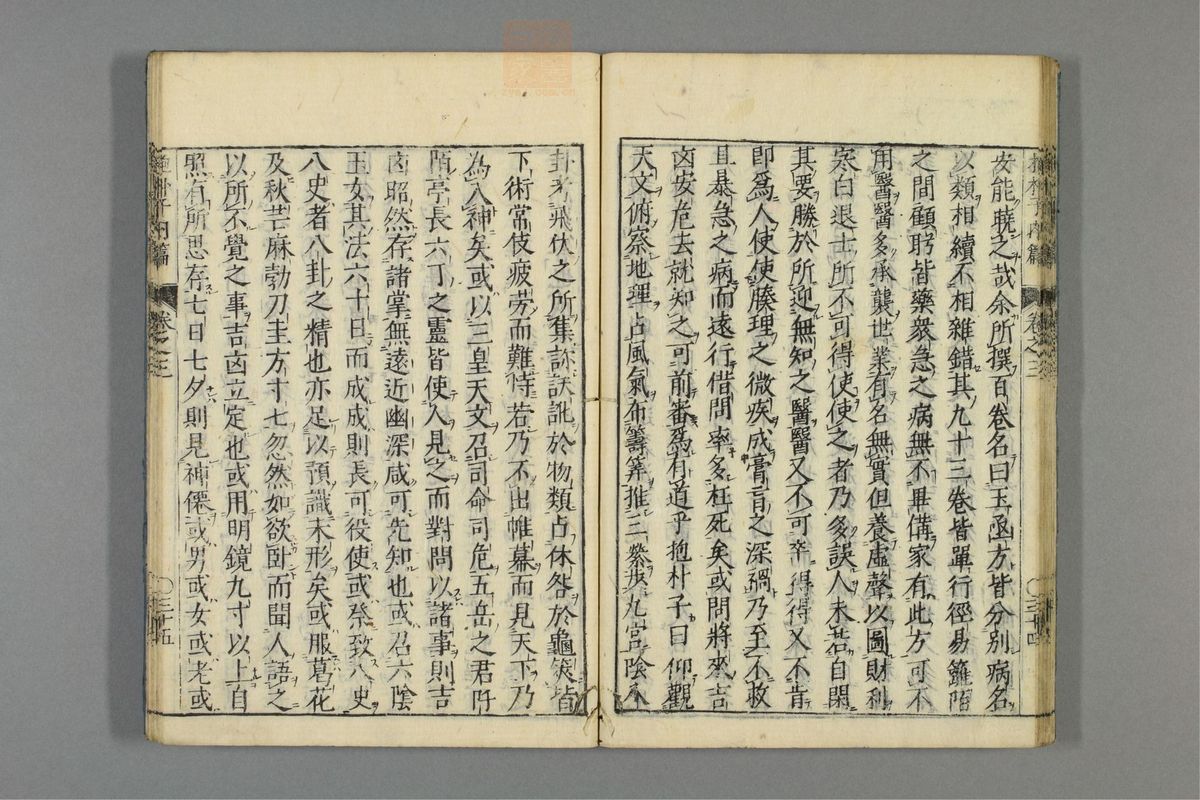 安能曉之哉余所撰百卷名曰玉函方皆分別病名
以類相續不相雜錯其九十三卷皆單行徑易籬陌
之間顧眄皆藥衆急之病無不畢備家有此方可不
用醫醫多承襲世業有名無實但養虛聲以圖財利
寒白退士所不可得使使之者乃多誤人未若自閑
其要勝於所迎無知之醫醫又不可卒得得又不肯
即爲人使使腠理之微疾成膏肓之深禍乃至不救
且暴急之病而遠行借問率多枉死矣或問將來吉
凶安危去就知之可前審爲有道乎抱朴子曰仰觀
天文俯察地理占風氣布籌筭推三綦步九宮
卦考飛伏之所集診訞訛於物類占休咎於龜筴皆
下術常伎疲勞而難恃若乃不出帷幕而見天下乃
為入神矣或以三皇天文召司命司危五岳之君阡
陌亭長六丁之靈皆使人見之而對問以諸事則吉
凶昭然存諸掌無遠近幽深咸可先知也或召六陰
玉女其法六十日而成成則長可役使或祭致八史
八史者八卦之精也亦足以預識未形矣或服葛花
及秋芒麻勃刀圭方寸七忽然如欲卧而聞人語之
以所不覺之事吉凶立定也或用明鏡九寸以上自
照有所思存七日七夕則見神僊或男或女或老或
抱朴子内篇 卷之三